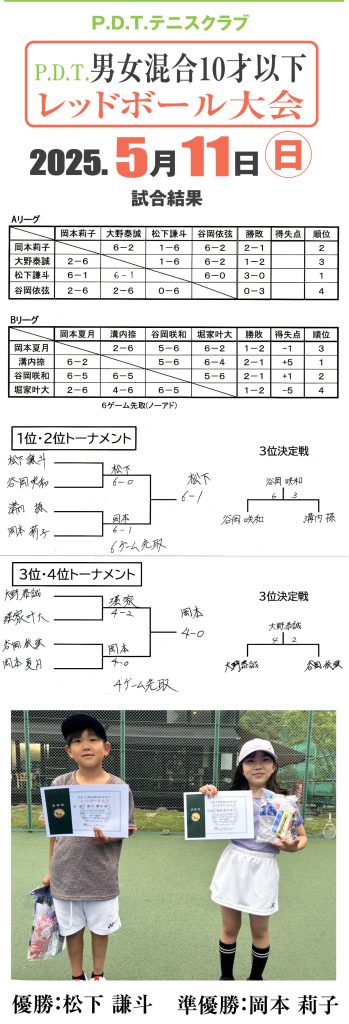 P.D.T.テニスクラブ
P.D.T.男女混合10才以下
レッドボール大会
2025.5月11日(日)
試合結果
Aリーグ
岡本莉子 大野泰誠 松下謙斗 谷岡依弦 勝敗 得失点 順位
岡本莉子 6－2 1－6 6－2 2－1 2
大野泰誠 2－6 1－6 6－2 1－2 3
松下謙斗 6－1 6－1 6－0 3－0 1
谷岡依弦 2－6 2－6 0－6 0－3 4
Bリーグ
岡本夏月 溝内捺 谷岡咲和 堀家叶大 勝敗 得失点 順位
岡本夏月 2－6 5－6 6－2 1－2 －1 3
溝内捺 6－2 5－6 6－4 2－1 +5 1
谷岡咲和 6－5 6－5 5－6 2－1 +1 2
堀家叶大 2－6 4－6 6－5 1－2 －5 4
6ゲーム先取(ノーアド)
1位・2位トーナメント
3位決定戦
松下謙斗
谷岡咲和
溝内 捺
岡本 莉子
松下
6－0
岡本
6－1
松下
6－1
6ゲーム先取
谷岡 咲和
6 3
谷岡 咲和 溝内 捺
3位・4位トーナメント
3位決定戦
大野泰誠
堀家叶大
谷岡依弦
岡本夏月
堀家
4－2
岡本
4－0
岡本
4－0
4ゲーム先取
大野泰誠
4 2
大野泰誠 谷岡依弦
レッドボール大会
優勝：松下 謙斗 準優勝：岡本 莉子